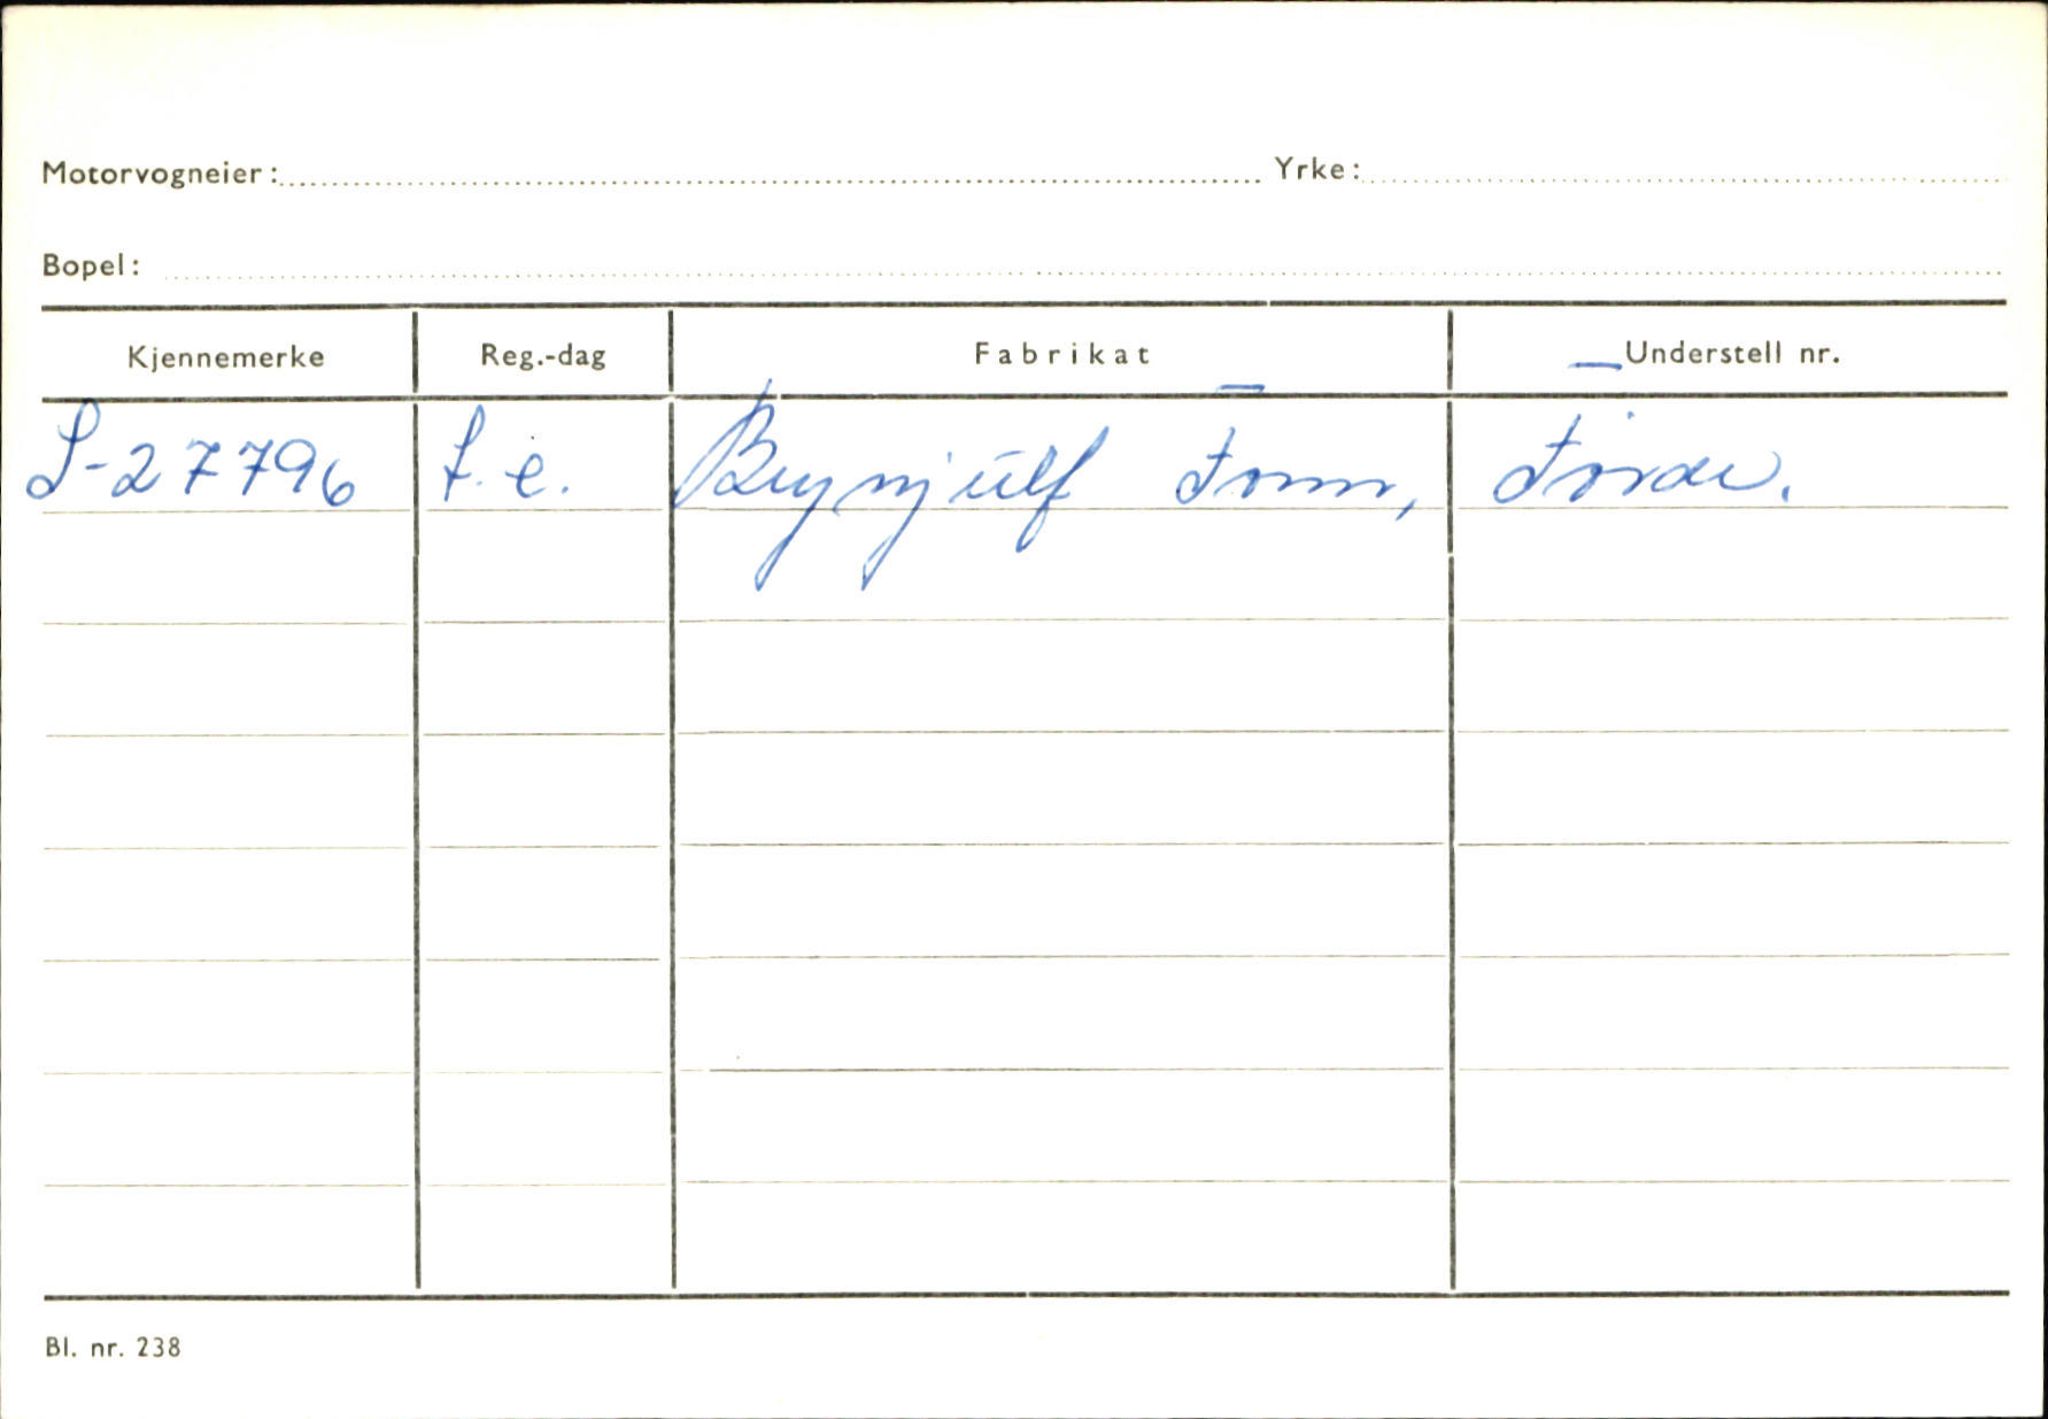 Motorvogneier: Yrke:
Bopel:
Kjennemerke Reg.-dag Fabrikat Understell nr.
S-27796 f.e. Brynjulf Fonn, Førde.
Bl. nr. 238